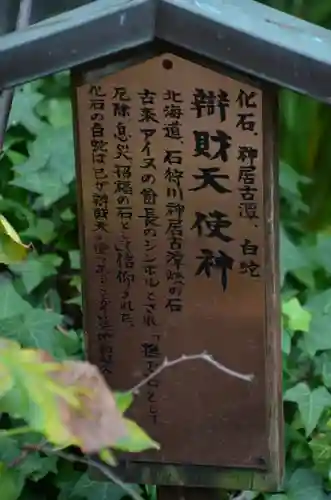 化石、神居古潭、白蛇
辯財天使神
北海道、石狩川神居古潭の石
古来アイヌの酋長のシンボルとされ
厄除、息災、招福の石として信仰された、
化石の白蛇は己が辯財天の使